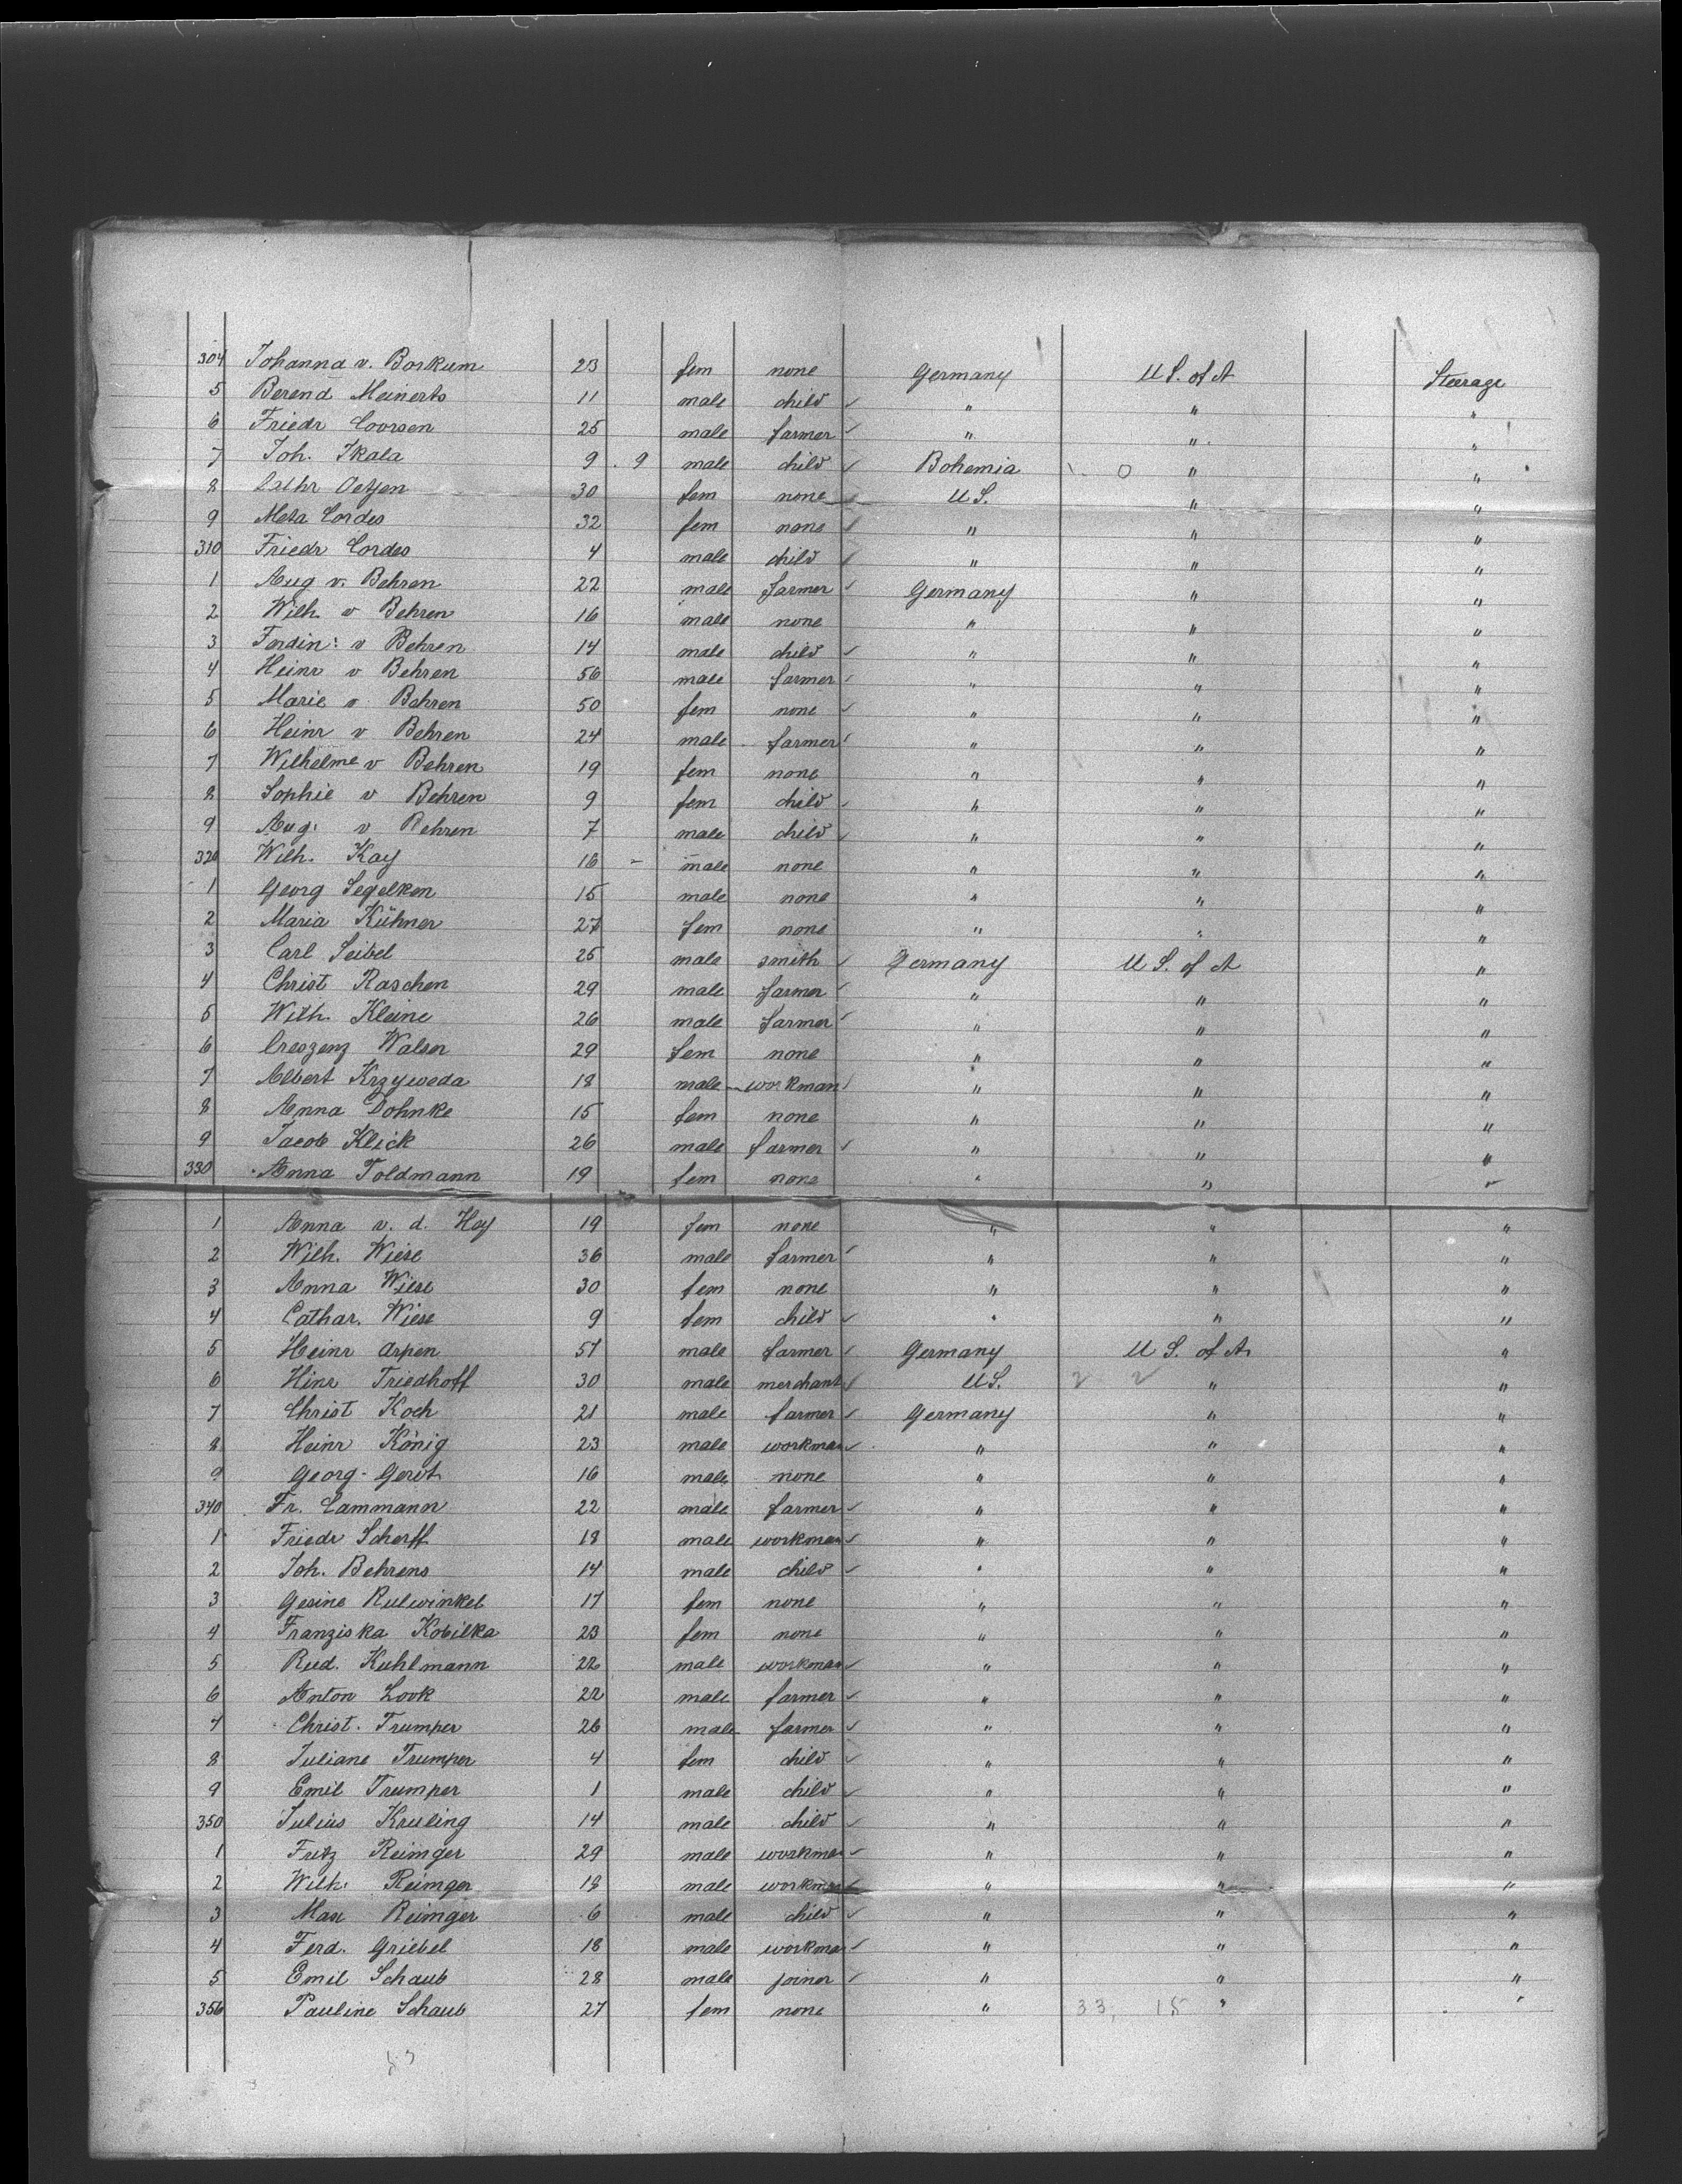 304 Johanna v. Borkum 23 fem none Germany U S. of A Steerage
5 Berend Meinerts 11 male child ✓ " " "
6 Friedr Coorsen 25 male farmer ✓ " " "
7 Joh. Skala 9 . 9 male child ✓ Bohemia O " "
8 Cathr Oetjen 30 fem none U S. " "
9 Meta Cordes 32 fem none " " "
310 Friedr Cordes 4 male child " " "
1 Aug v. Behren 22 male farmer ✓ Germany " "
2 Wilh. v Behren 16 male none " " "
3 Ferdin: v Behren 14 male child ✓ " " "
4 Heinr v Behren 56 male farmer ✓ " " "
5 Marie v Behren 50 fem none ✓ " " "
6 Heinr v Behren 24 male farmer ✓ " " "
7 Wilhelme v Behren 19 fem none " " "
8 Sophie v Behren 9 fem child ✓ " " "
9 Aug: v Behren 7 male child ✓ " " "
320 Wilh. Kay 16 - male none " " "
1 Georg Segelken 15 male none " " "
2 Maria Kühner 27 fem none " " "
3 Carl Seibel 25 male smith ✓ Germany U S. of A "
4 Christ Raschen 29 male farmer ✓ " " "
5 Wilh. Kleine 26 male farmer ✓ " " "
6 Creszenz Walser 29 fem none " " "
7 Albert Krzyweda 18 male workman " " "
8 Anna Dohnke 15 fem none " " "
9 Jacob Klick 26 male farmer ✓ " " "
330 Anna Toldmann 19 fem none " " "
1 Anna v. d. Hoy 19 fem none " " "
2 Wilh. Wiese 36 male farmer ✓ " " "
3 Anna Wiese 30 fem none " " "
4 Cathar. Wiese 9 fem child ✓ " " "
5 Heinr Arpen 57 male farmer ✓ Germany U S. of A. "
6 Hinr Friedhoff 30 male merchant ✓ U S. 2 2 " "
7 Christ Koch 21 male farmer ✓ Germany " "
8 Heinr König 23 male workman ✓ " " "
9 Georg Gerdt 16 male none " " "
340 Fr. Lammann 22 male farmer ✓ " " "
1 Friedr Scherff 18 male workman ✓ " " "
2 Joh. Behrens 14 male child ✓ " " "
3 Gesine Rulwinkel 17 fem none " " "
4 Franziska Kobilka 23 fem none " " "
5 Rud. Kuhlmann 22 male workman ✓ " " "
6 Anton Look 22 male farmer ✓ " " "
7 Christ. Trumper 26 male farmer ✓ " " "
8 Juliane Trumper 4 fem child ✓ " " "
9 Emil Trumper 1 male child ✓ " " "
350 Julius Kruling 14 male child ✓ " " "
1 Fritz Reimger 29 male workman ✓ " " "
2 Wilh. Reimger 18 male workman ✓ " " "
3 Max Reimger 6 male child ✓ " " "
4 Ferd. Griebel 18 male workman ✓ " " "
5 Emil Schaub 28 male joiner ✓ " " "
356 Pauline Schaub 27 fem none " 33, 15 " "